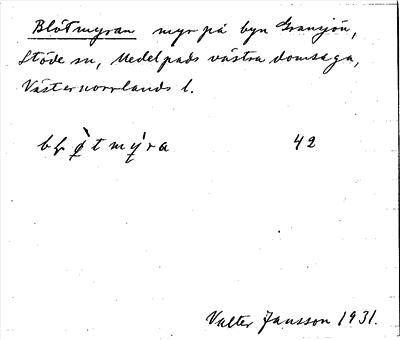 Blötmyran myr på byn Gransjön,
Stöde sn, Medelpads västra domsaga,
Västernorrlands l.
42
Valter Jansson 1931.